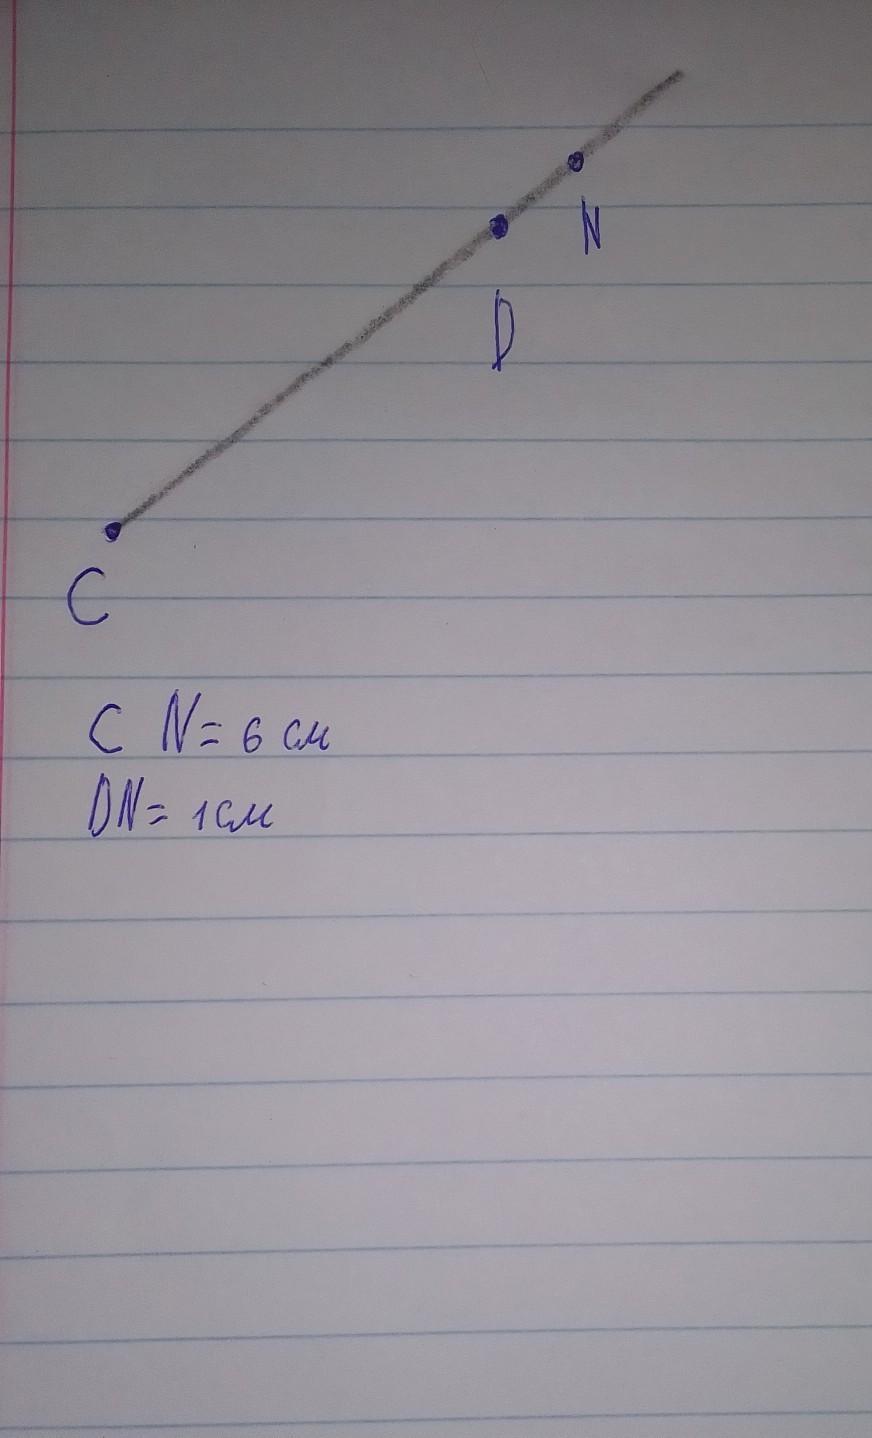 N
D
C
C N = 6 см
DN = 1 см